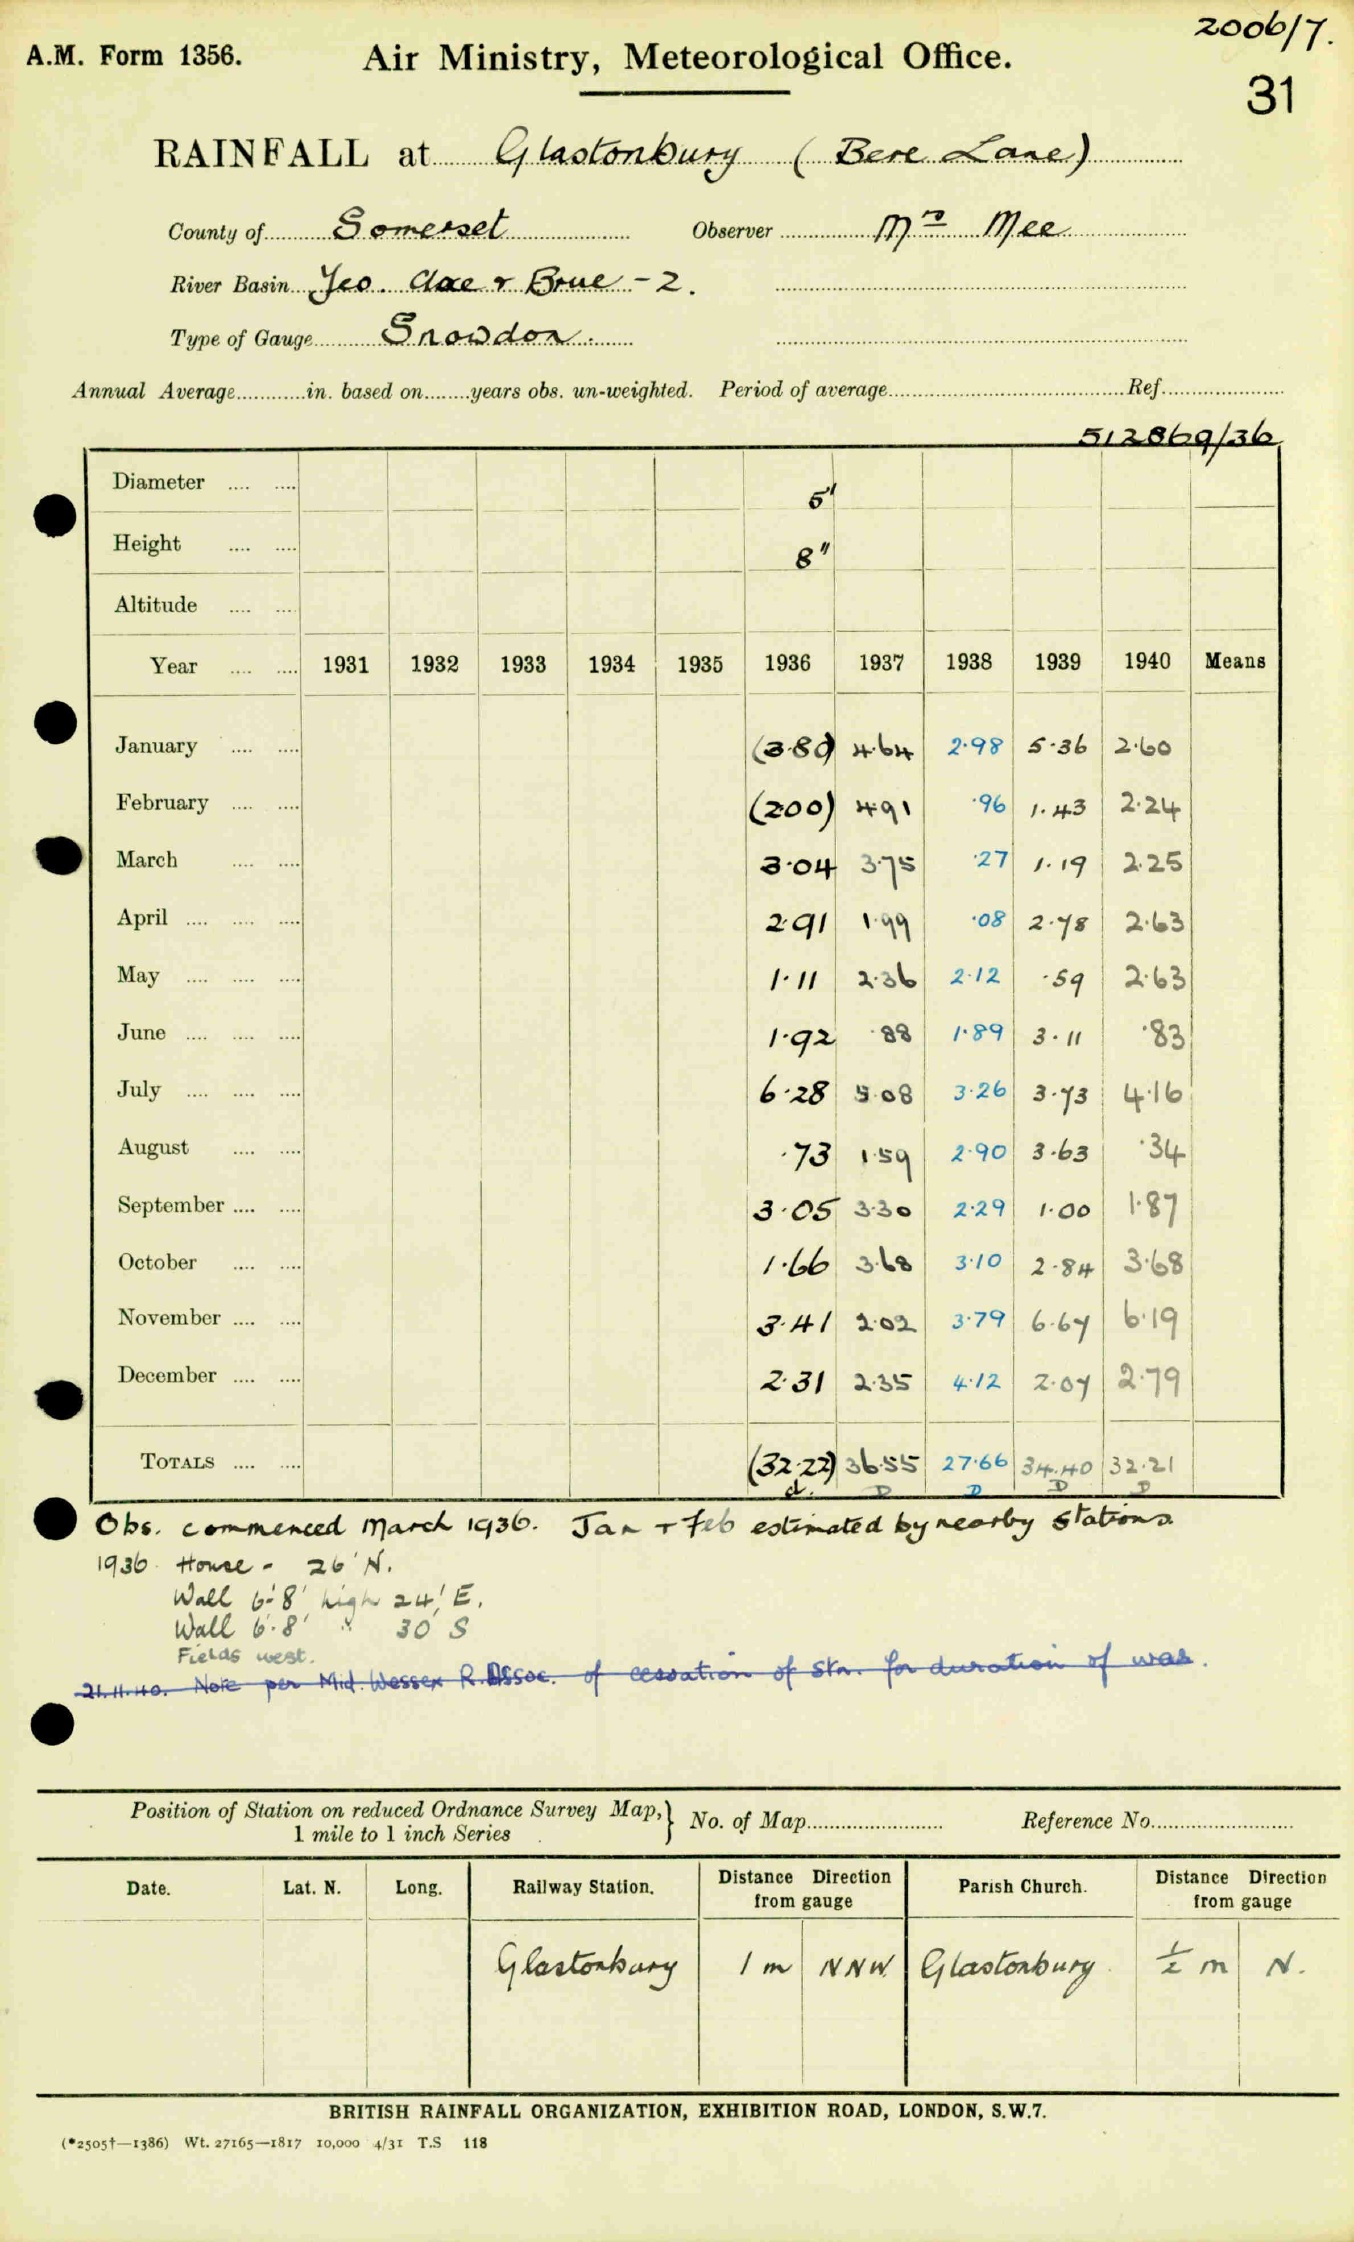 2006/7.
A.M. Form 1356. Air Ministry, Meteorological Office.
31
RAINFALL at Glastonbury (Bere Lane)
County of Somerset Observer Mrs Mee
River Basin Yeo. Axe + Brue - 2.
Type of Gauge Snowdon.
Annual Average in. based on years obs. un-weighted. Period of average Ref.
512869/36
Diameter 5"
Height 8"
Altitude
Year 1931 1932 1933 1934 1935 1936 1937 1938 1939 1940 Means
January (3.80) 4.64 2.98 5.36 2.60
February (2.00) 4.91 .96 1.43 2.24
March 3.04 3.75 .27 1.19 2.25
April 2.91 1.99 .08 2.78 2.63
May 1.11 2.36 2.12 .59 2.63
June 1.92 .88 1.89 3.11 .83
July 6.28 5.08 3.26 3.73 4.16
August .73 1.59 2.90 3.63 .34
September 3.05 3.30 2.29 1.00 1.87
October 1.66 3.68 3.10 2.84 3.68
November 3.41 2.02 3.79 6.67 6.19
December 2.31 2.35 4.12 2.07 2.79
TOTALS (32.22) 36.55 27.66 34.40 32.21
d. D D D D
Obs. commenced March 1936. Jan + Feb estimated by nearby stations
1936 House - 26' N.
Wall 6'-8' high 24' E.
Wall 6'-8' " 30' S
Fields west.
21.11.40. Note per Mid. Wessex R. Assoc. of cessation of Stn. for duration of war.
Position of Station on reduced Ordnance Survey Map, } No. of Map Reference No.
1 mile to 1 inch Series
Date. Lat. N. Long. Railway Station. Distance Direction from gauge Parish Church. Distance Direction from gauge
Glastonbury 1 m NNW Glastonbury ½ m N.
BRITISH RAINFALL ORGANIZATION, EXHIBITION ROAD, LONDON, S.W.7.
(*2505†—1386) Wt. 27165—1817 10,000 4/31 T.S 118